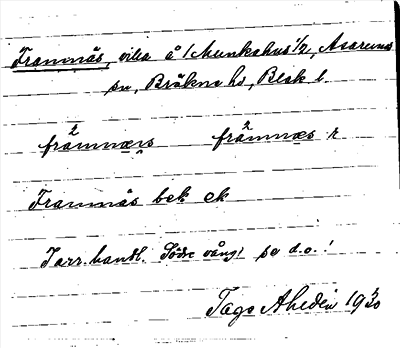 Framnäs, villa å Munkahus 1/2, Asarums
sn, Bräkne hd, Blek l.
främnæs främnæs r
Framnäs bek ek
Jarr.handl. Södre vång se d.o.!
Tage Ahedin 19 30